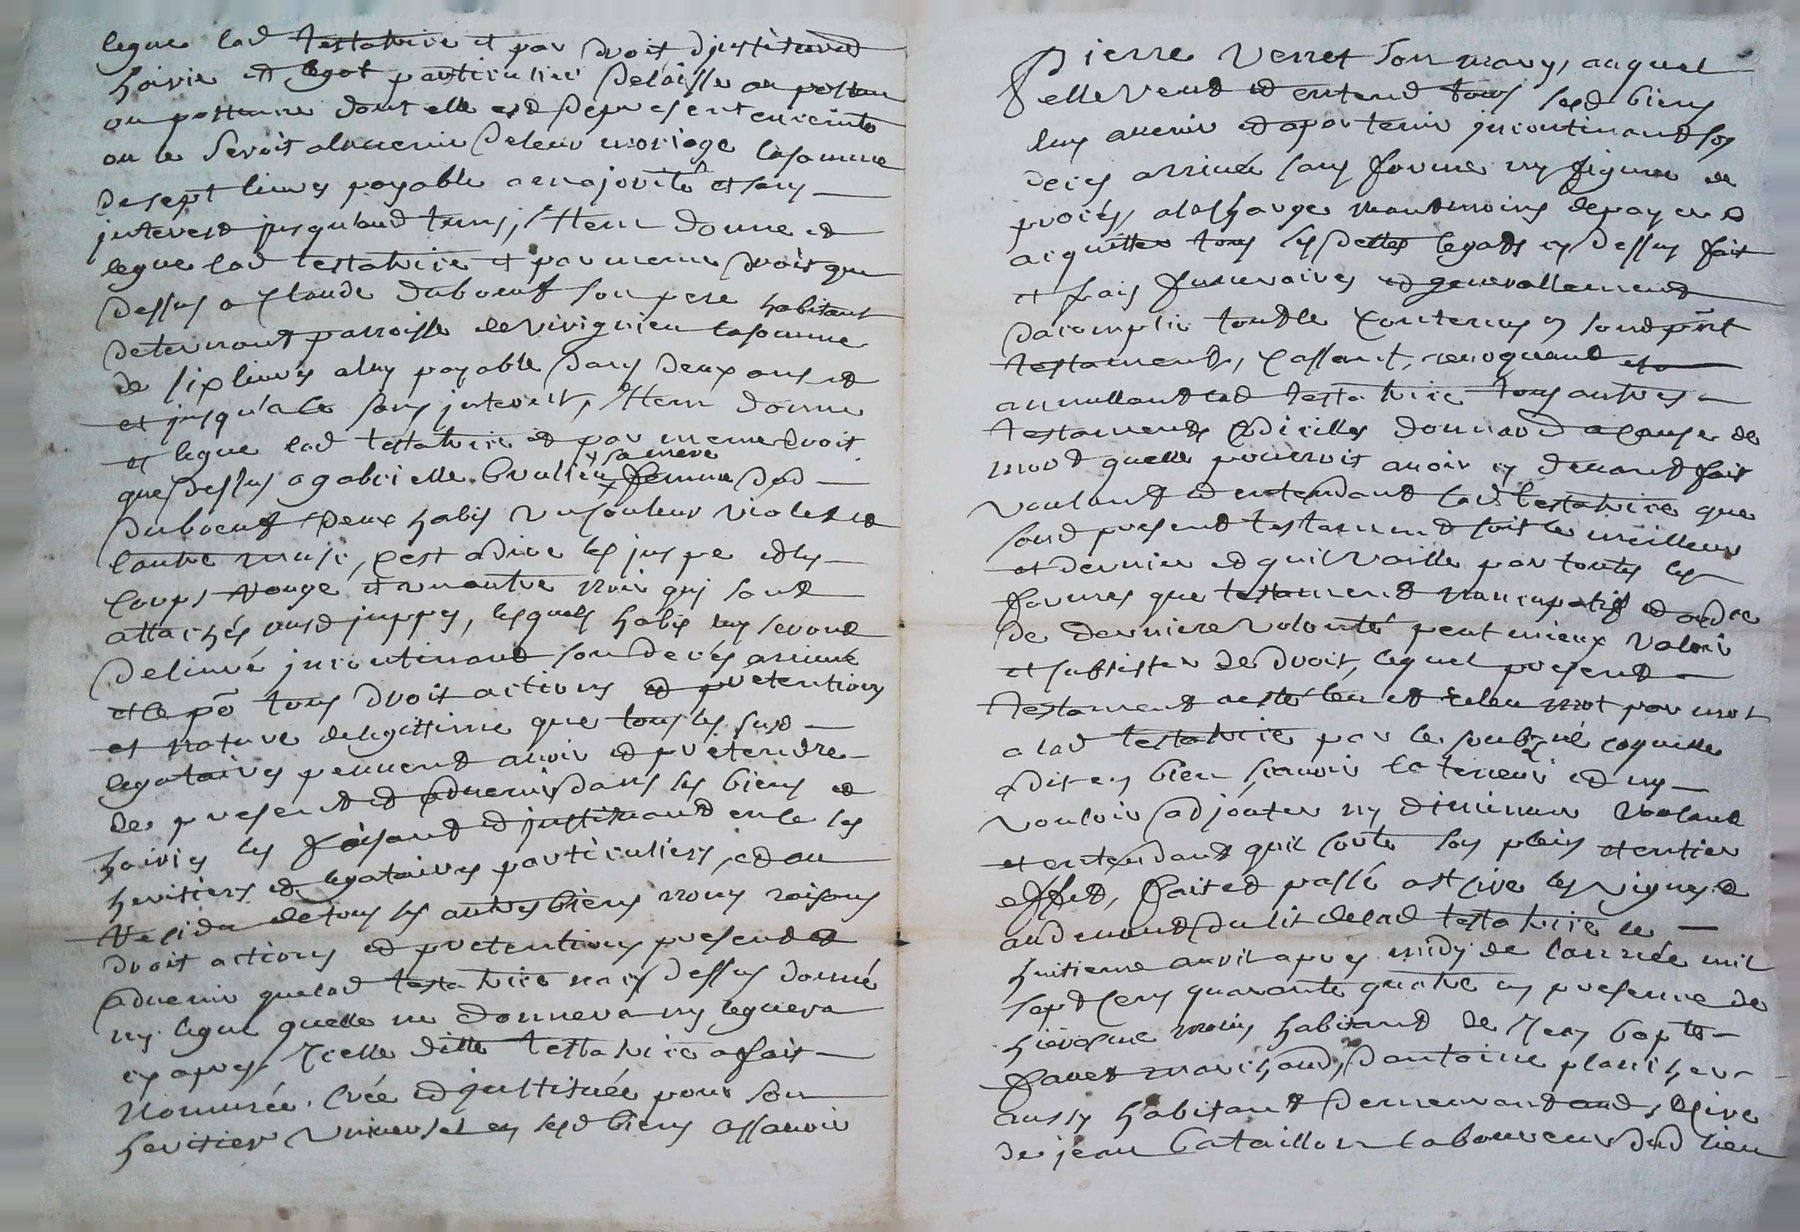 legue lad testatrice et par droit djnstitution
hoirie et legat particulier delaisse au postume
ou postume dont elle est depnt et enceinte
ou a Seroit aduenir de leur mariage la somme
de sept livres payable a majorité et sans
jnterest jusqu'aud tems, Item donne et
legue lad testatrice et par meme droit que
dessus a Claude duboeuf son pere habitant
de ternand parroisse de virignieu la somme
de six livres a luy payable dans deux ans et
et jusqu'a ce sans jnterest, Item donne
et legue lad testatrice et par meme droit
que dessus a gabrielle brulier sa mere femme dud
duboeuf deux habis un couleur violet et
lautre musc, c'est a dire les juspe et les
corps rouge et un autre noir qui sont
attachés ausd juppes, lesquels habis luy seront
delivré jncontinant son decés arrivé
et le po tous droit actions et pretentions
et nature de legittime que tous les susd
legataires peuuent auoir et prétendre
de present et aduenir dans les biens et
hoiries les faisant et jnstituant en ce ses
heritiers et legataires particuliers, et au
Residu de tous ses autres biens noms raisons
droit actions et pretentions present et
aduenir que lad testatrice na cy dessus donné
ny legué quelle ne donnera ny leguera
cy apres Icelle ditte testatrice a fait
Nommée, Créé et jnstituée pour son
heritier Universel en sesd biens assauoir
Pierre Verret son mary, auquel
elle veut et entend tous sesd biens
luy auenir et apartenir jncontinant son
decés arrivé sans forme ny figure de
procés, a la charge neantmoins de payer et
acquitter tous ses dettes legats cy dessus fait
et frais funeraires et generallement
dacomplir tout le contenu en sond pnt
testament, Cassant, revoquant et
annullant lad testatrice tous autres
testaments Codicilles donnaon a cause de
mort quelle pourroit auoir cy deuant fait
voulant et entendant lad testatrice que
sond present testament soit le meilleur
et dernier et quil vaille par toutes les
formes que testament nuncupatif et ordre
de derniere volonté peut mieux valoir
et subsister de droit, lequel present
testament a esté leu et releu mot par mot
a lad testatrice par le soubné laquelle
a dit en bien sçauoir la teneur et ny
vouloir adjouter ny diminuer voulant
et entendant quil sorte son plein et entier
effet, fait et passé a st cire les vignes
au deuant du lit de lad testatrice le
huitieme auril apres midy de l'année mil
sept cens quarante quatre en presence de
hierosme mouis habitant de Jean bapte
fauet marchand, dantoine plancher
aussy habitant demeurant aud st Cire
de jean bataillon laboureur dud lieu